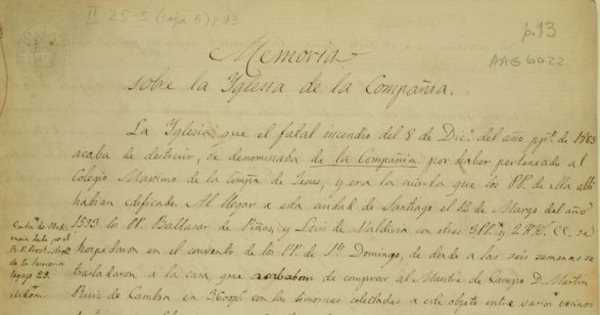 II 25-5 (caja 5) p.13
p.13
AAG 6022
Memoria
sobre la Yglesia de la Compañia.
La Yglesia que el fatal incendio del 8 de Dic.e del año pp.o de 1863
acaba de destruir, se denominaba de la Compañia por haber pertenecido al
Colegio Maximo de la Comp.a de Jesus, y era la cuarta que los PP. de ella alli
habian edificado. Al llegar a esta ciudad de Santiago el 12 de Marzo del año
1593 los PP. Baltasar de Piñas, y Luis de Valdivia con otros PP. y 2 HH. CC. se
hospedaron en el convento de los PP. de S.to Domingo, de donde a las seis semanas se
trasladaron a la casa que acababan de comprar al Maestre de Campo D. Martin
Ruiz de Gamboa en 3600ps con las limosnas colectadas a este objeto entre varios vecinos
dada por el
de la
legajo 29.